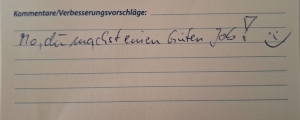 Kommentare/Verbesserungsvorschläge:
Mo, du machst einen Guten Job!